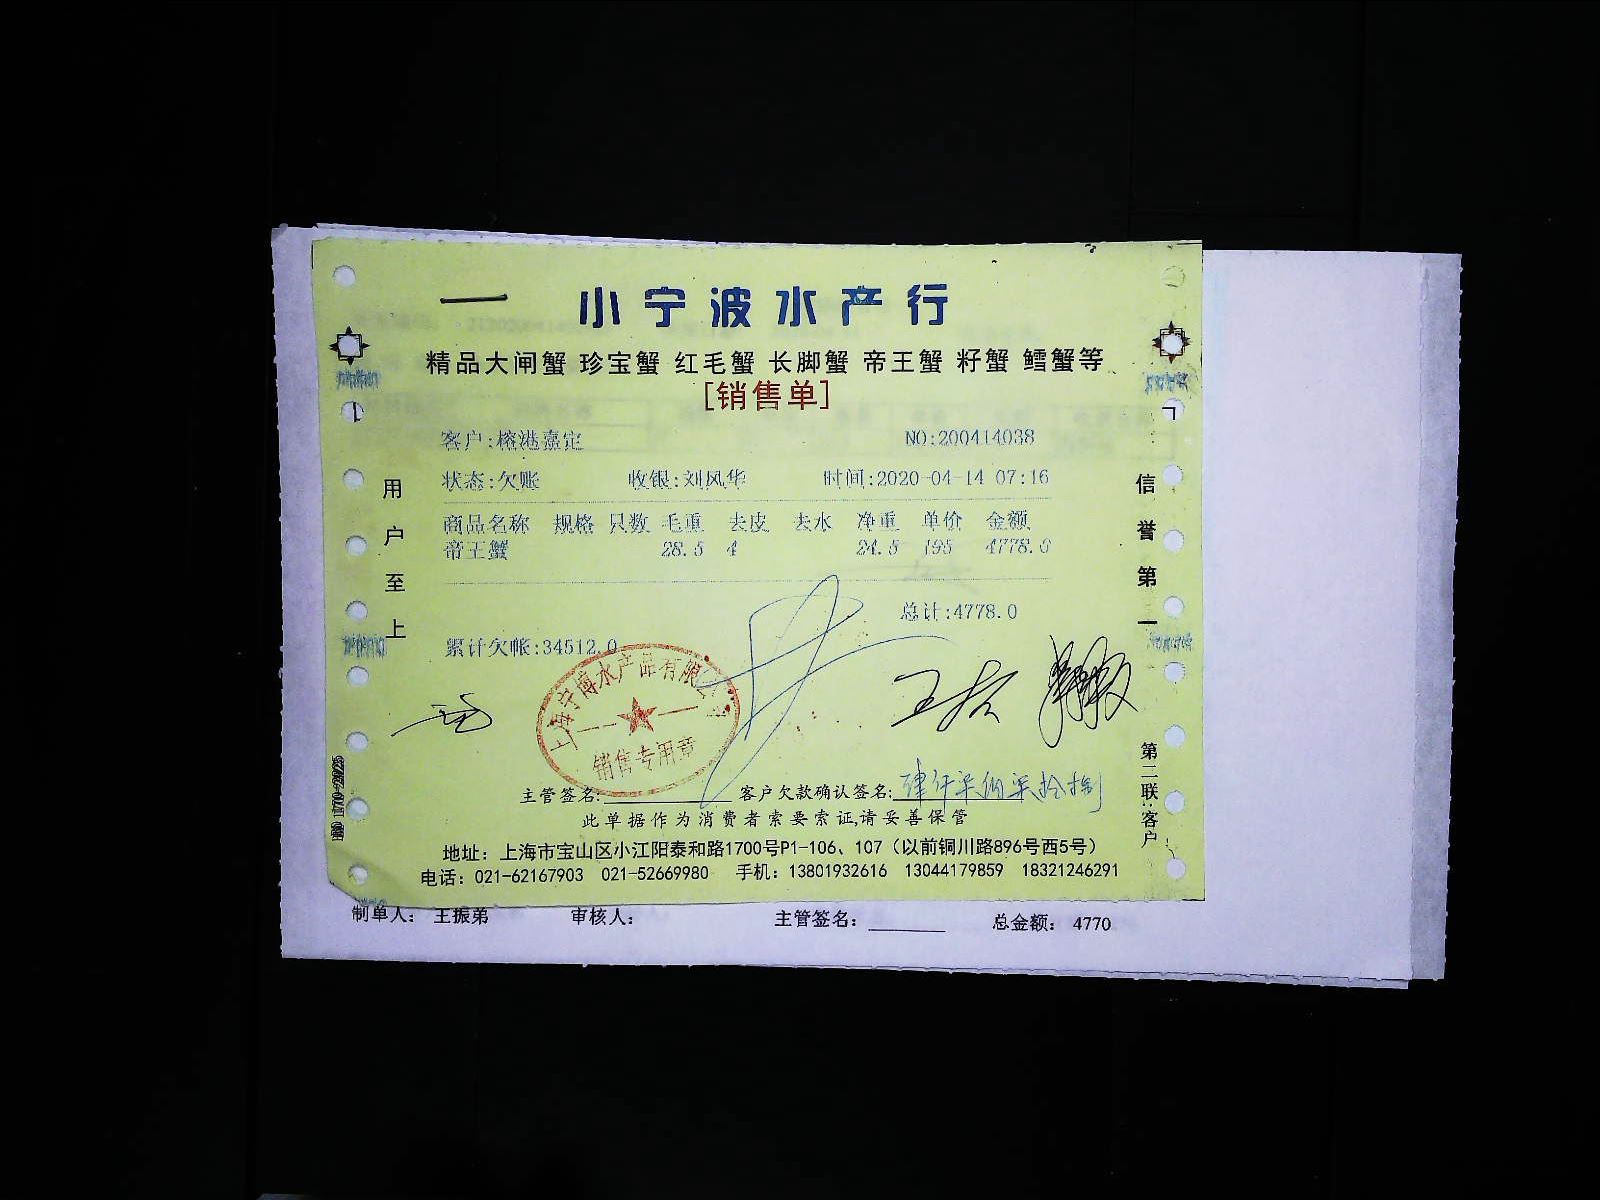 小宁波水产行
精品大闸蟹 珍宝蟹 红毛蟹 长脚蟹 帝王蟹 籽蟹 鳕蟹等
[销售单]
客户:榕港嘉定 NO:200414038
状态:欠账 收银:刘风华 时间:2020-04-14 07:16
商品名称 规格 只数 毛重 去皮 去水 净重 单价 金额
帝王蟹 28.5 4 24.5 195 4778.0
总计:4778.0
累计欠帐:34512.0
用户至上
信誉第一
第二联:客户
上海宁博水产品有限公司
销售专用章
主管签名: 客户欠款确认签名: 肆仟柒佰柒拾捌
此单据作为消费者索要索证,请妥善保管
地址：上海市宝山区小江阳泰和路1700号P1-106、107（以前铜川路896号西5号）
电话：021-62167903 021-52669980 手机：13801932616 13044179859 18321246291
制单人： 王振弟 审核人： 主管签名： 总金额： 4770